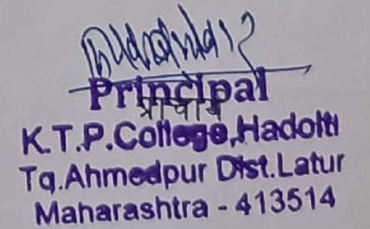 Principal
प्राचार्य
K.T.P.College,Hadolti
Tq.Ahmedpur Dist.Latur
Maharashtra - 413514